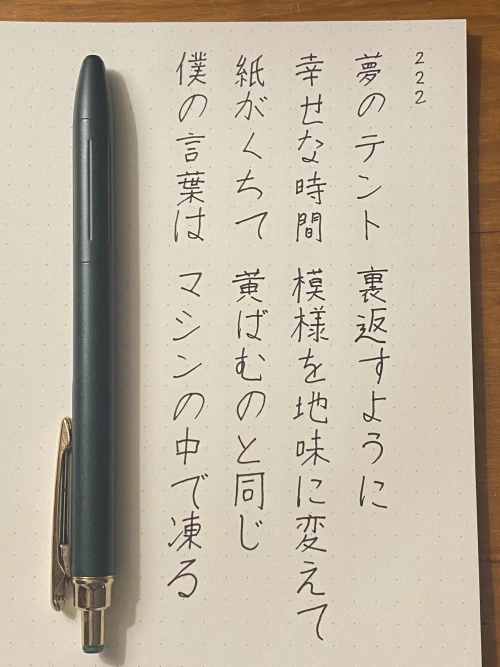 222
夢のテント 裏返すように
幸せな時間 模様を地味に変えて
紙がくちて 黄ばむのと同じ
僕の言葉は マシンの中で凍る